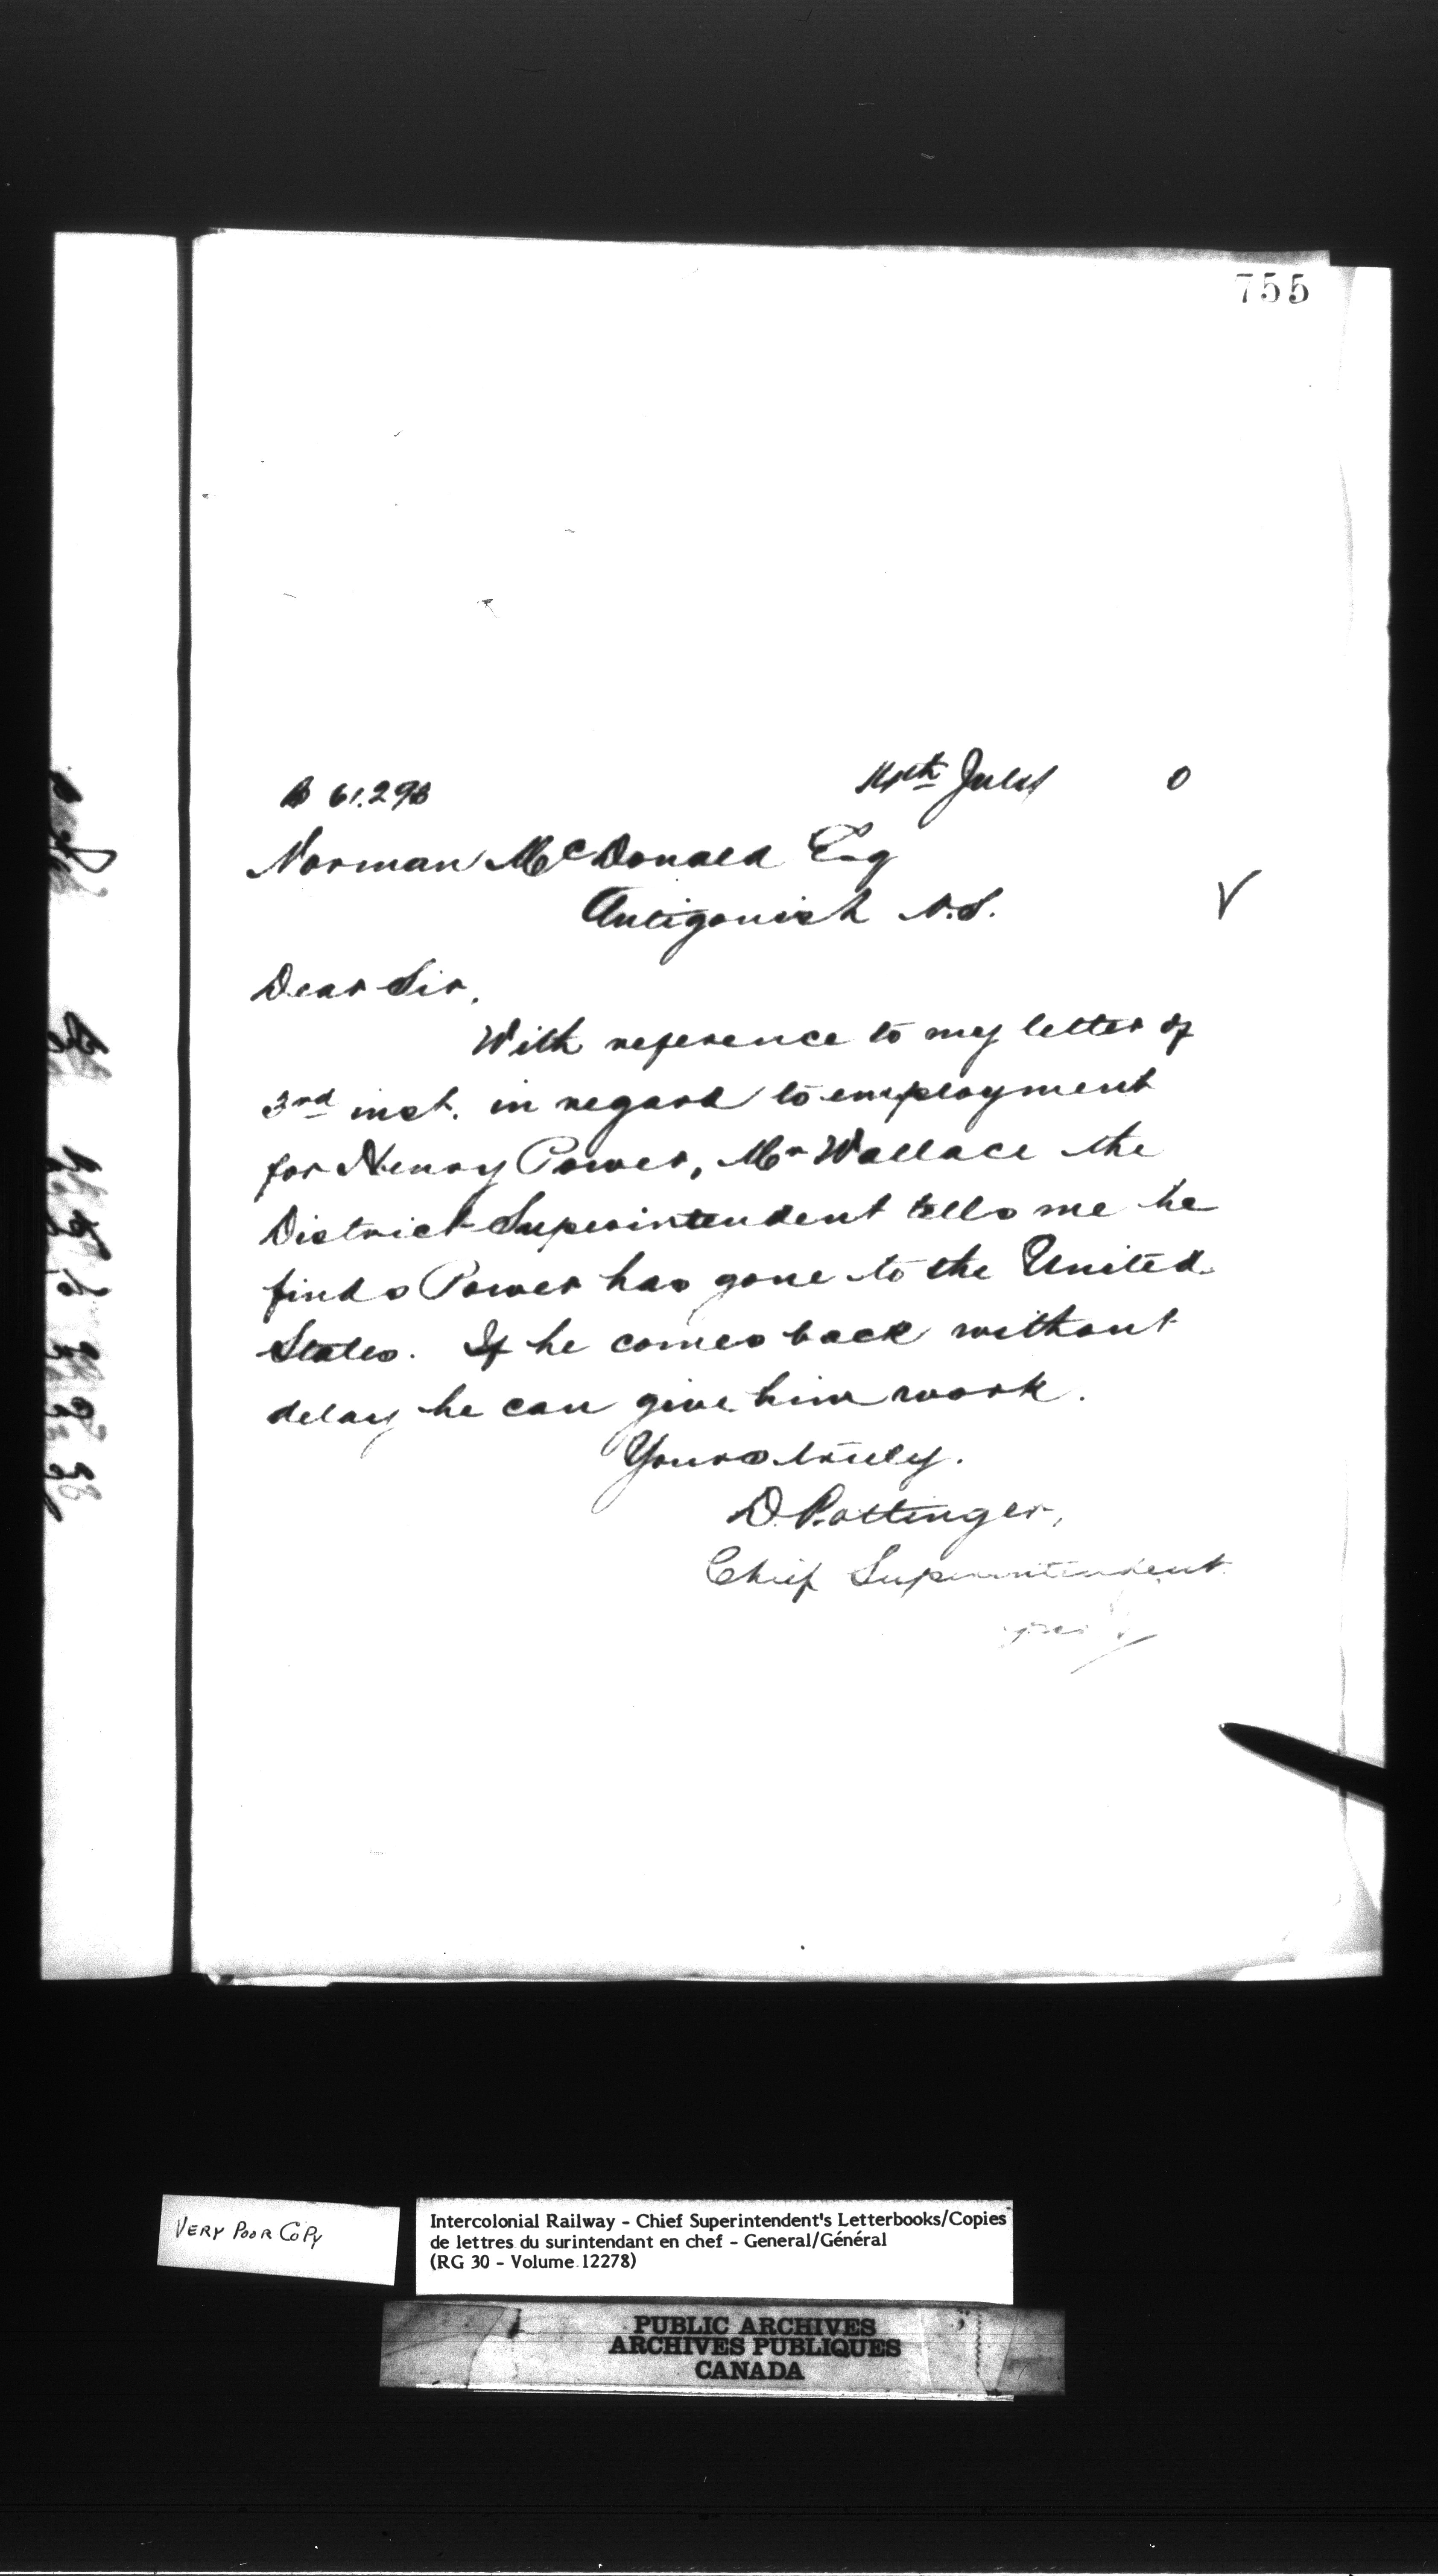 755
14th July 0
B 61.298
Norman McDonald Esq
Antigonish N.S.
Dear Sir,
With reference to my letter of
3rd inst. in regard to employment
for Henry Power, Mr Wallace the
District Superintendent tells me he
finds Power has gone to the United
States. If he comes back without
delay he can give him work.
Yours truly.
D. Pottinger,
Chief Superintendent
VERY POOR COPY
Intercolonial Railway - Chief Superintendent's Letterbooks/Copies
de lettres du surintendant en chef - General/Général
(RG 30 - Volume 12278)
PUBLIC ARCHIVES
ARCHIVES PUBLIQUES
CANADA